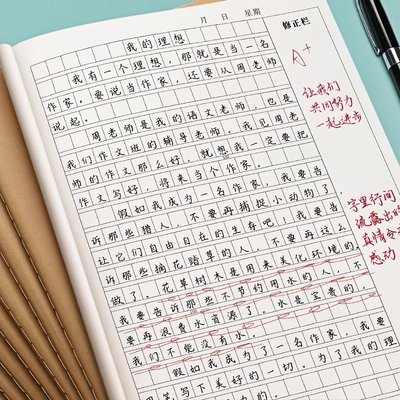 月 日 星期
修正栏
我的理想
我有一个理想，那就是当一名
作家。要说当作家，还要从周老师
说起。
周老师是我的语文老师，也是
我们作文班的辅导老师。我见周老
师的作文那么好，就想我一定要把
作文写好，将来当个作家。
假如我成为一名作家，我要告
诉那些猎人，不要再捕捉小动物了，
让它们自由自在的生存吧！我要告
诉那些摘花踏草的人，不要再这么
做了。花草树木是用来美化环境的。
我要告诉那些不节约用水的人，不
要再浪费水资源了，水是宝贵的，
我们不能没有水。
假如我成为了一名作家，我要
用笔写下美好的一切。为了我的理
A+
让我们
共同努力
一起进步
字里行间
流露出的
真情令
感动